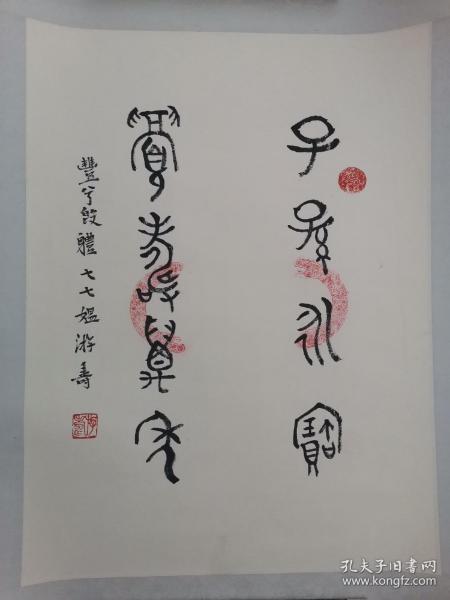 子孫永寶
眉壽萬年
豐兮𣪘體 七七媪游壽
孔夫子旧书网
www.kongfz.com